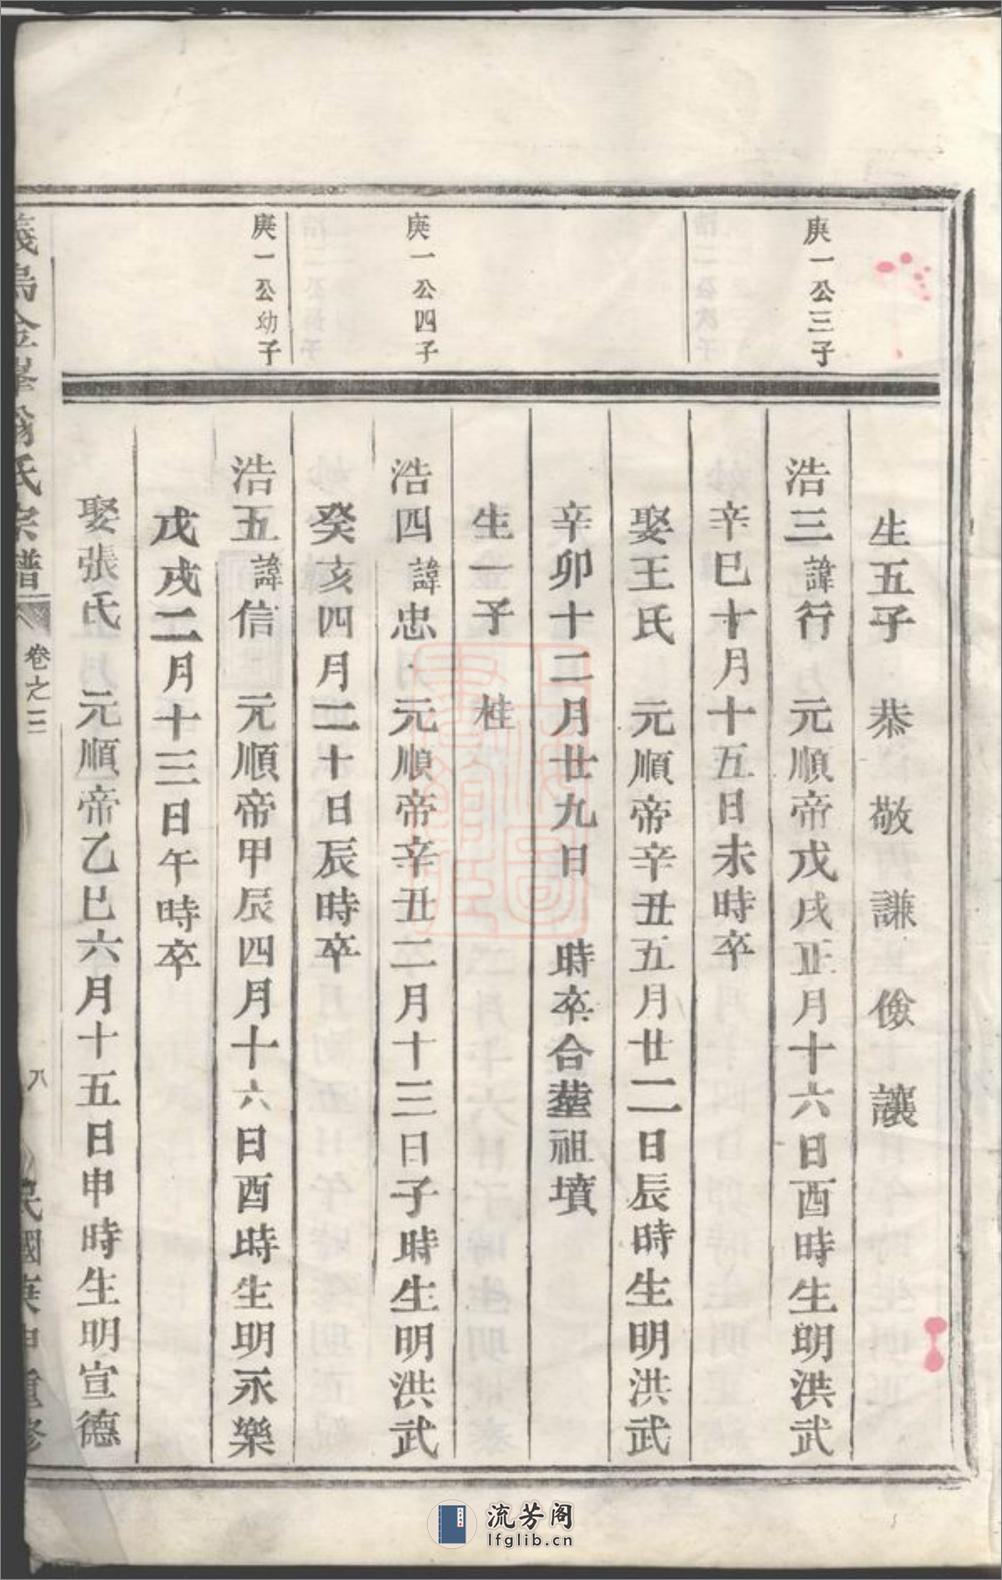 庚一公三子
庚一公四子
庚一公幼子
生五子 恭 敬 謙 儉 讓
浩三諱行 元順帝戊戌正月十六日酉時生明洪武
辛巳十月十五日未時卒
娶王氏 元順帝辛丑五月廿二日辰時生明洪武
辛卯十二月廿九日 時卒合塟祖墳
生一子 桂
浩四諱忠 元順帝辛丑二月十三日子時生明洪武
癸亥四月二十日辰時卒
浩五諱信 元順帝甲辰四月十六日酉時生明永樂
戊戌二月十三日午時卒
娶張氏 元順帝乙巳六月十五日申時生明宣德
義烏金峯 氏宗譜 卷之三 八 民國 申重修
流芳阁
lfglib.cn